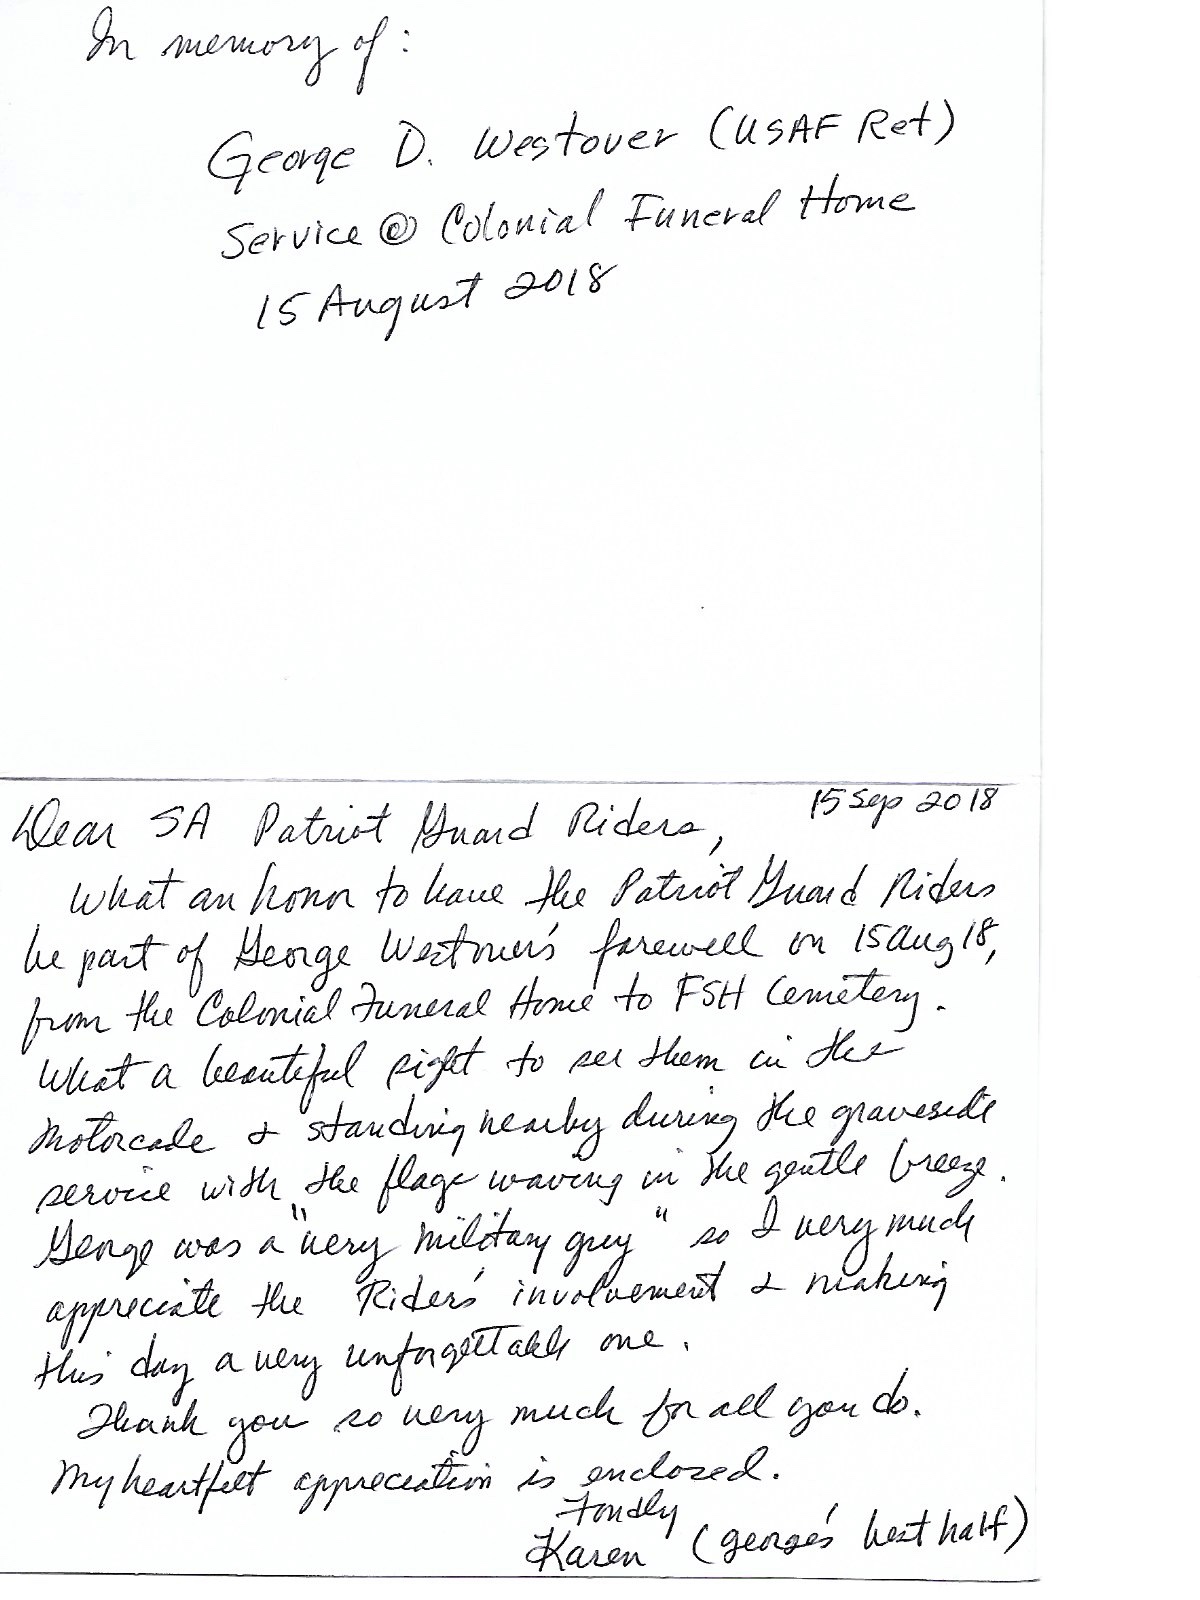 In memory of:
George D. Westover (USAF Ret)
Service @ Colonial Funeral Home
15 August 2018
15 Sep 2018
Dear SA Patriot Guard Riders,
What an honor to have the Patriot Guard Riders
be part of George Westover's farewell on 15 Aug 18,
from the Colonial Funeral Home to FSH Cemetery.
What a beautiful sight to see them in the
motorcade & standing nearby during the graveside
service with the flags waving in the gentle breeze.
George was a "very military guy" so I very much
appreciate the Riders' involvement & making
this day a very unforgettable one.
Thank you so very much for all you do.
My heartfelt appreciation is enclosed.
Fondly
Karen (George's best half)